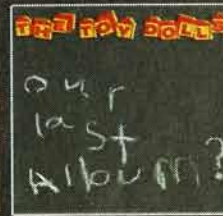 THE TOY DOLLS
our
last
Album?